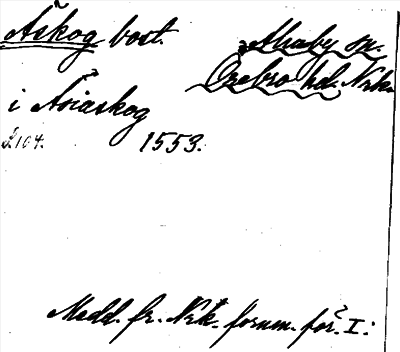 Åskog bost.
Almby sn.
Örebro hd. Nrk.
i Åsiaskog
1553.
Medd. fr. Nrk. fornm.för. I: